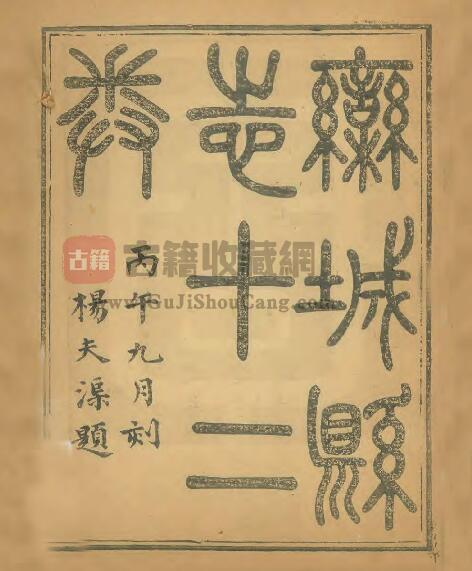 欒城縣
志十二
卷
丙午九月刻
楊夫渠題
古籍
古籍收藏網
www.GuJiShouCang.com